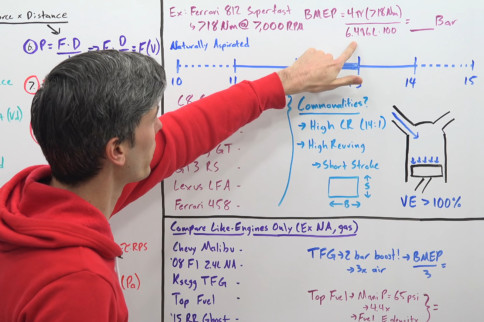 rce x Distance
⑥ P = F·D => F·D = F(V)
⑦
(V)
RPS
(Po)
Ex: Ferrari 812 Superfast
↳ 718 Nm @ 7,000 RPM
BMEP = 4π(718Nm) = ___ Bar
6.496L·100
Naturally Aspirated
10 11 13 14 15
GT
3 RS
Lexus LFA -
Ferrari 458 -
Commonalities?
→ High CR (14:1)
→ High Revving
→ Short Stroke
S
B
VE > 100%
Compare Like-Engines Only (Ex NA, gas)
Chevy Malibu -
'08 F1 2.4L NA -
Ksegg TFG -
Top Fuel -
'15 RR Ghost -
TFG → 2 bar boost! → BMEP =
→ 3x air 3
Top Fuel → Mani P = 65psi
→ 4.4x
→ Fuel E density